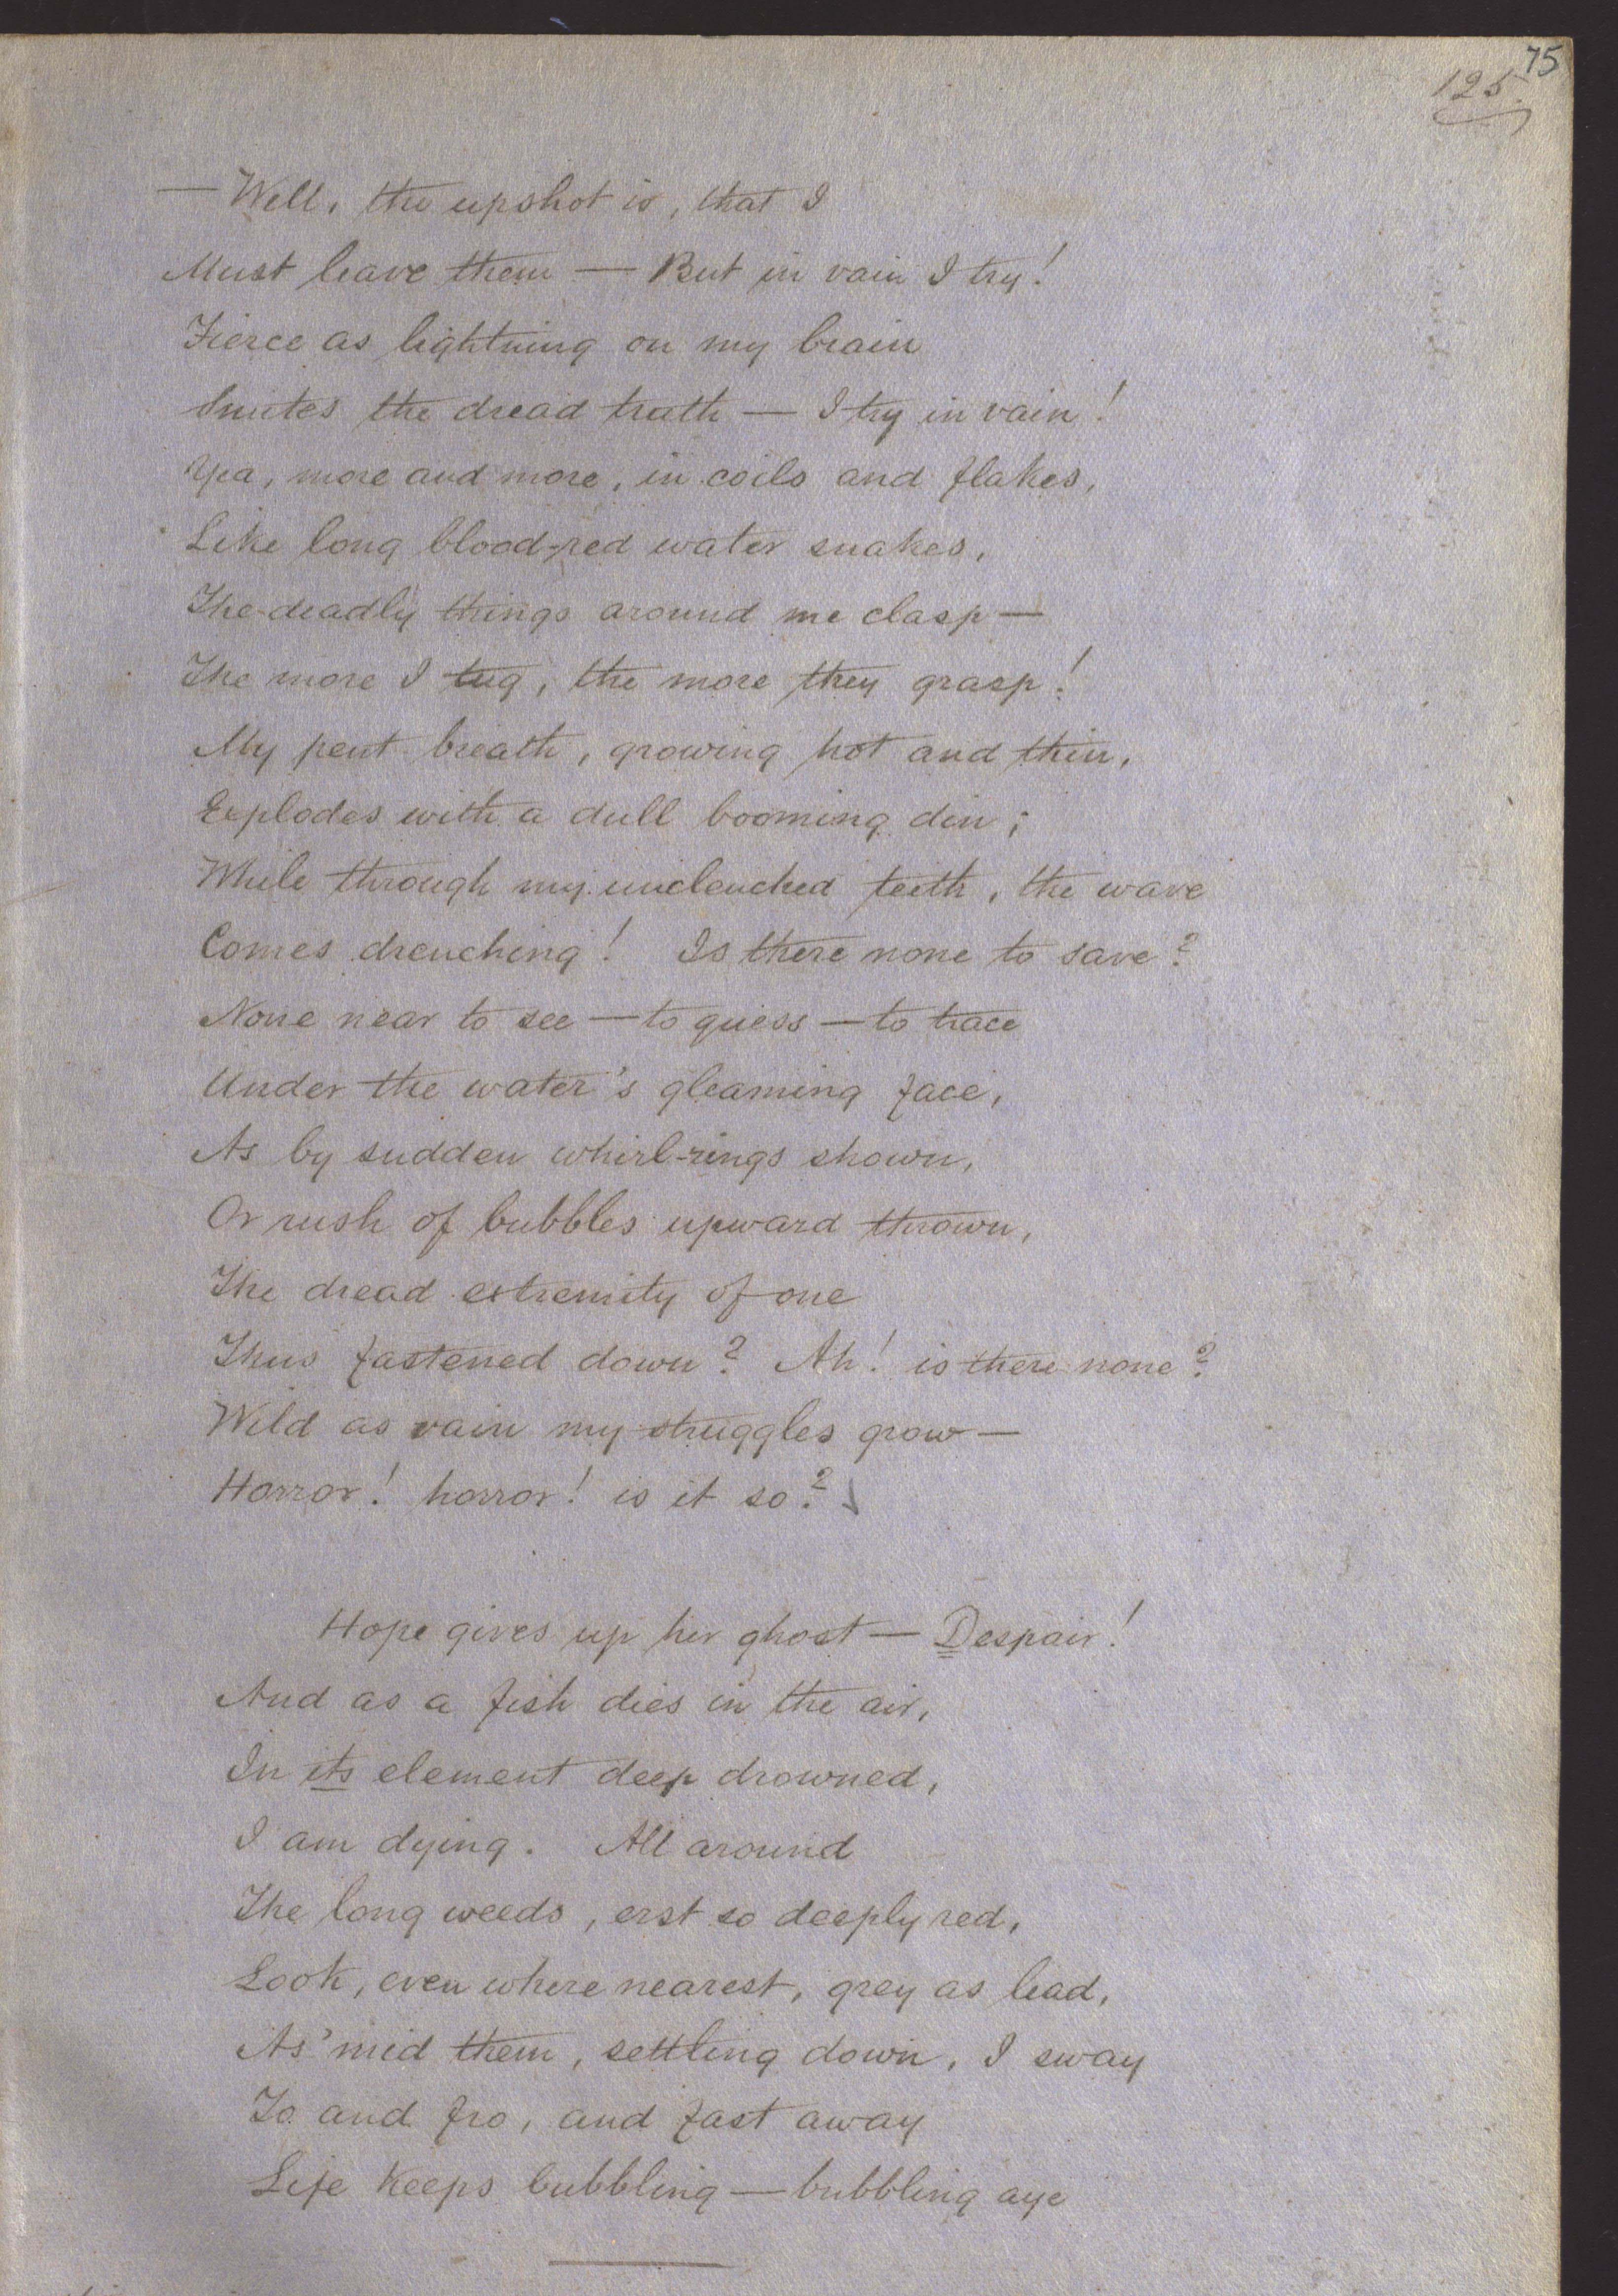 75
125.
— Well, the upshot is, that I
Must leave them — But in vain I try!
Fierce as lightning on my brain
Smites the dread truth — I try in vain!
Yea, more and more, in coils and flakes,
Like long blood-red water snakes,
The deadly things around me clasp —
The more I tug, the more they grasp!
My pent breath, growing hot and thin,
Explodes with a dull booming din;
While through my unclenched teeth, the wave
Comes drenching! Is there none to save?
None near to see — to guess — to trace
Under the water's gleaming face,
As by sudden whirl-rings shown,
Or rush of bubbles upward thrown,
The dread extremity of one
Thus fastened down? Ah! is there none?
Wild as vain my struggles grow —
Horror! horror! is it so?
Hope gives up her ghost — Despair!
And as a fish dies in the air,
In its element deep drowned,
I am dying. All around
The long weeds, erst so deeply red,
Look, even where nearest, grey as lead,
As 'mid them, settling down, I sway
To and fro, and fast away
Life keeps bubbling — bubbling aye